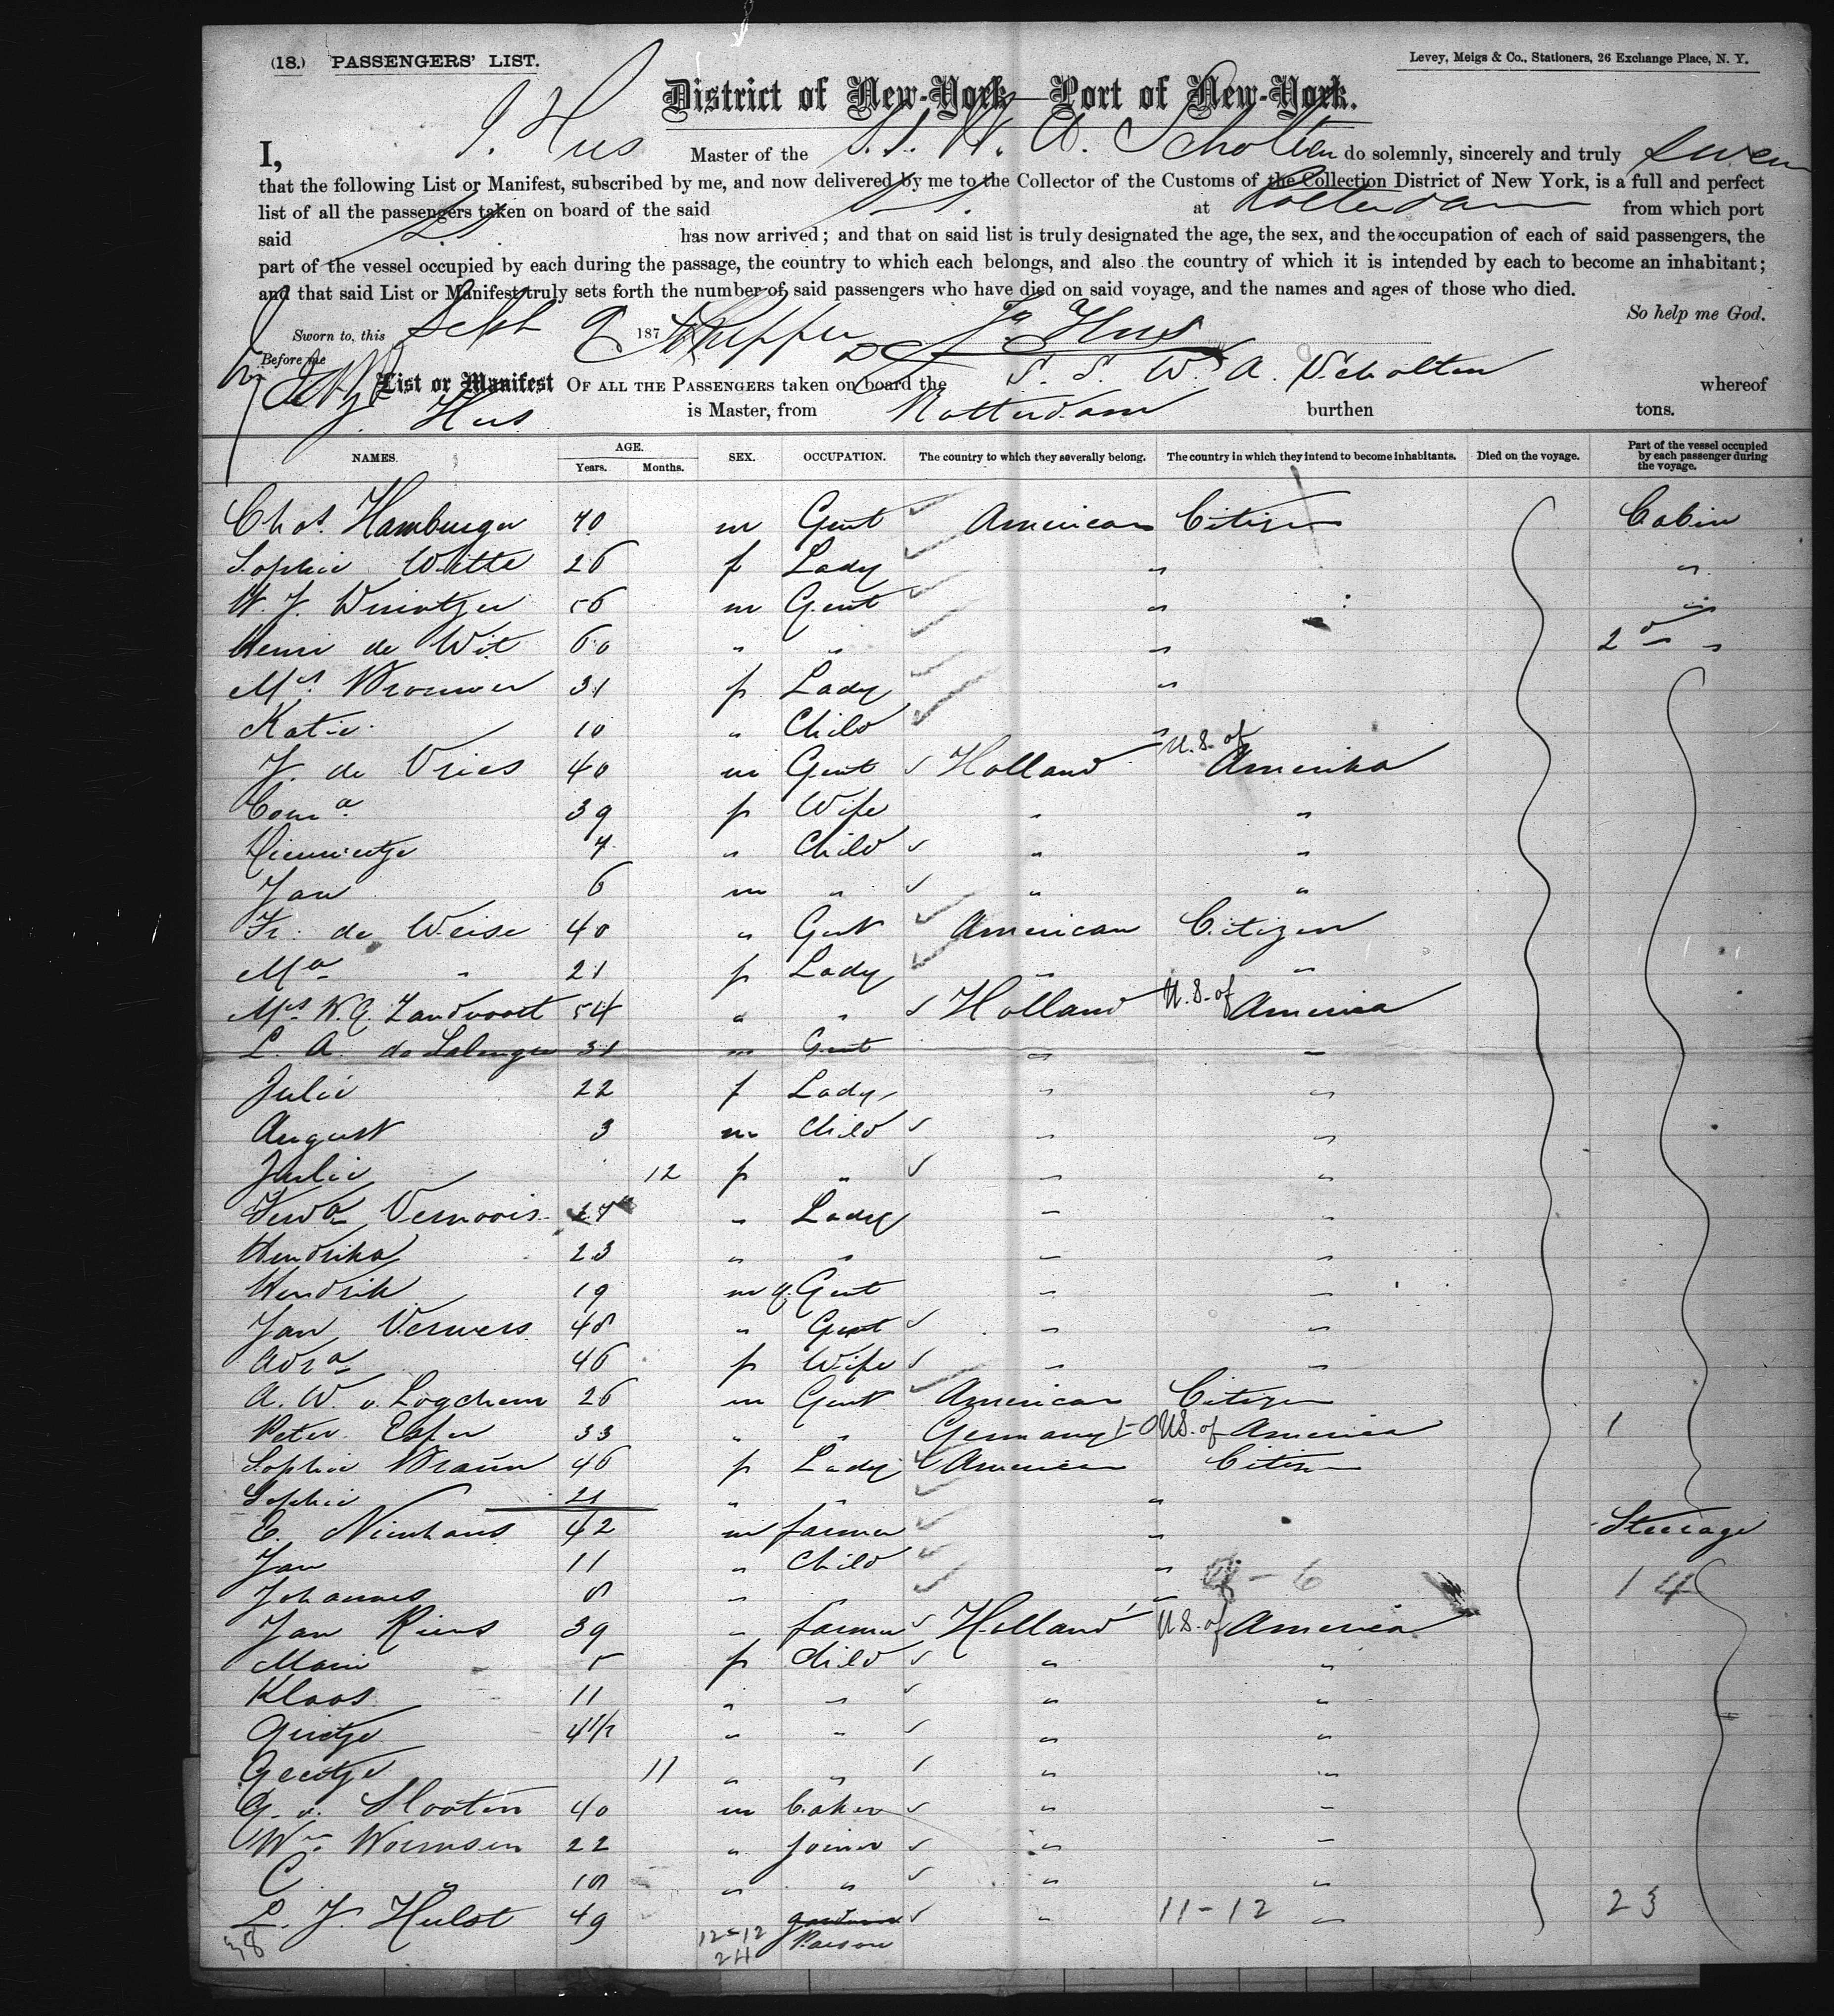 (18.) PASSENGERS' LIST.
Levey, Meigs & Co., Stationers, 26 Exchange Place, N. Y.
District of New-York—Port of New-York.
I, J. Hus Master of the S.S. W. A. Scholten do solemnly, sincerely and truly swear
that the following List or Manifest, subscribed by me, and now delivered by me to the Collector of the Customs of the Collection District of New York, is a full and perfect
list of all the passengers taken on board of the said S.S. at Rotterdam from which port
said S.S. has now arrived; and that on said list is truly designated the age, the sex, and the occupation of each of said passengers, the
part of the vessel occupied by each during the passage, the country to which each belongs, and also the country of which it is intended by each to become an inhabitant;
and that said List or Manifest truly sets forth the number of said passengers who have died on said voyage, and the names and ages of those who died.
So help me God.
Sworn to, this Sept 9 187 J. Hus
Before me
List or Manifest OF ALL THE PASSENGERS taken on board the S. S. W. A. Scholten whereof
J. Hus is Master, from Rotterdam burthen tons.
NAMES. AGE. Years. Months. SEX. OCCUPATION. The country to which they severally belong. The country in which they intend to become inhabitants. Died on the voyage. Part of the vessel occupied by each passenger during the voyage.
Chas. Hamburger 40 m Gent American Citizen Cabin
Sophie Witte 26 f Lady " "
W. J. 56 m Gent " "
Henri de Wit 60 " " " 2d "
Mrs. Brouwer 31 f Lady "
Katie 10 " Child "
J. de Vries 40 m Gent Holland U.S. of Amerika
39 f Wife " "
4 " Child " "
Jan 6 m " " "
Fr. de Weise 40 " Gent American Citizen
Ma " 21 f Lady " "
Mrs W. G. Zandvoort 54 " " Holland U.S. of America
L. A. 31 m Gent " "
Julie 22 f Lady " "
August 3 m Child " "
Julie 12 f " " "
Vernoois 24 " Lady " "
Hendrika 23 " " " "
Hendrik 19 m Gent " "
Jan Verwers 48 " Gent " "
Adra 46 f Wife " "
A. W. v. Logchem 26 m Gent American Citizen
Peter Esser 33 " " Germany U.S. of America 1
Sophie Braun 46 f Lady American Citizen
Sophie 21 " " "
C. Nienhaus 42 m farmer " Steerage
Jan 11 " Child " 6
Johannes 8 " " 14
Jan Riens 39 " farmer Holland U.S. of America
Marie 5 f child " "
Klaas 11 " " " "
Grietje 4 1/2 " " " "
Geertje 11 " " " "
G. v. Slooten 40 m baker " "
Wm. Wormsen 22 " joiner " "
C " 18 " " " "
L. J. Hulst 49 Parson " 11-12 " 23
38 12-12
24